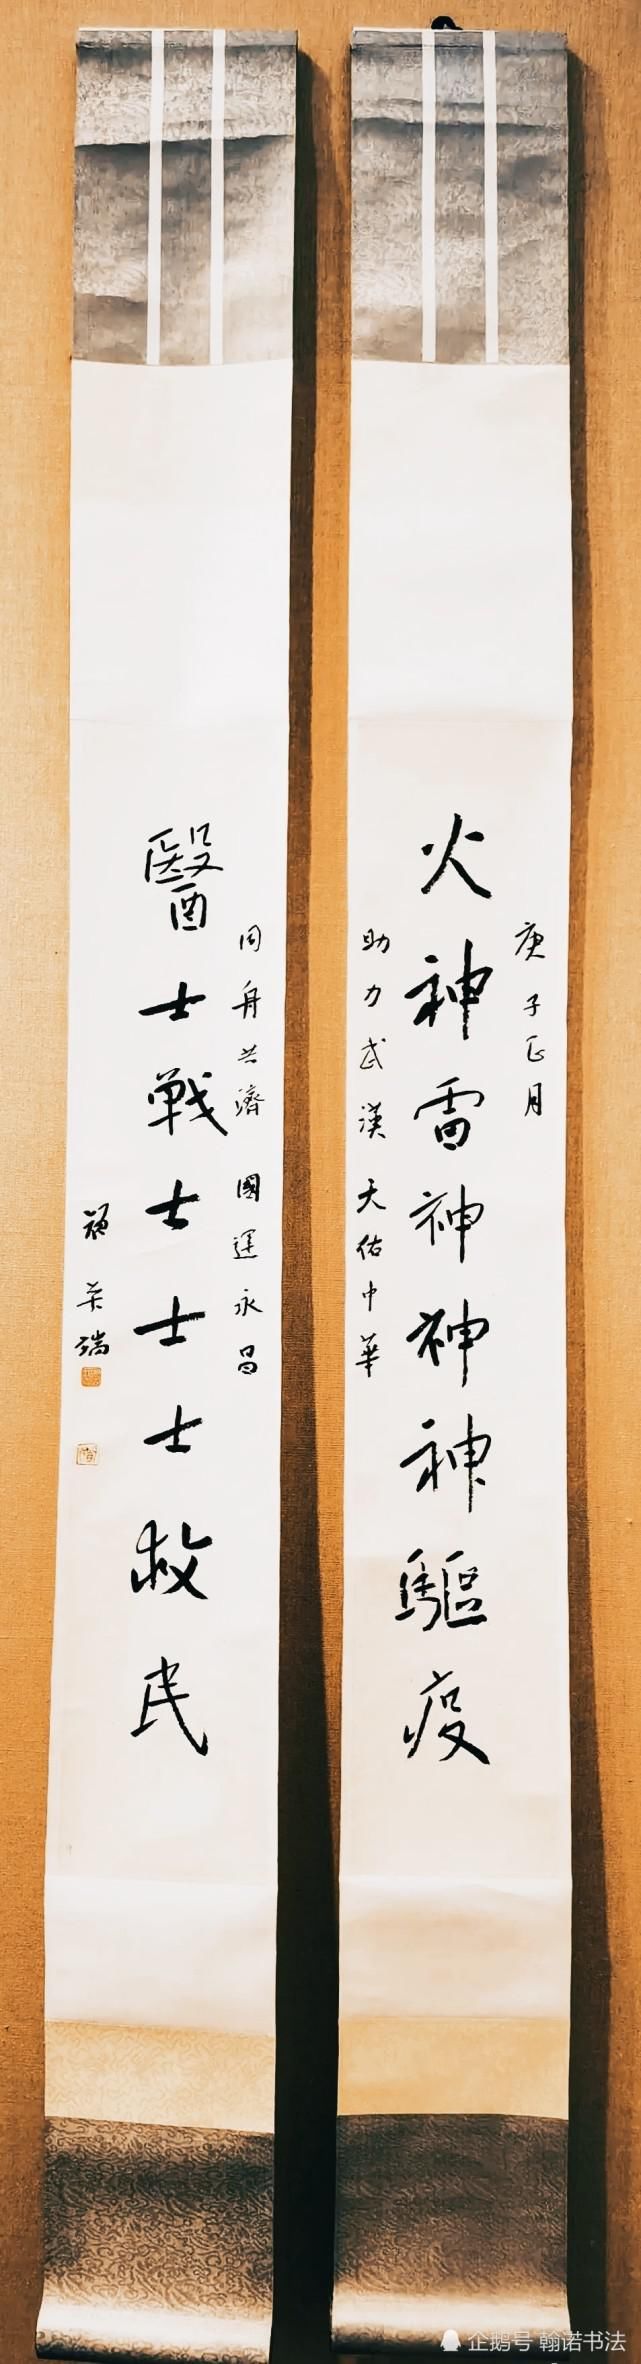 庚子正月
火神雷神神神驅疫
助力武漢 天佑中華
同舟共濟 國運永昌
醫士戰士士士救民
企鹅号 翰诺书法